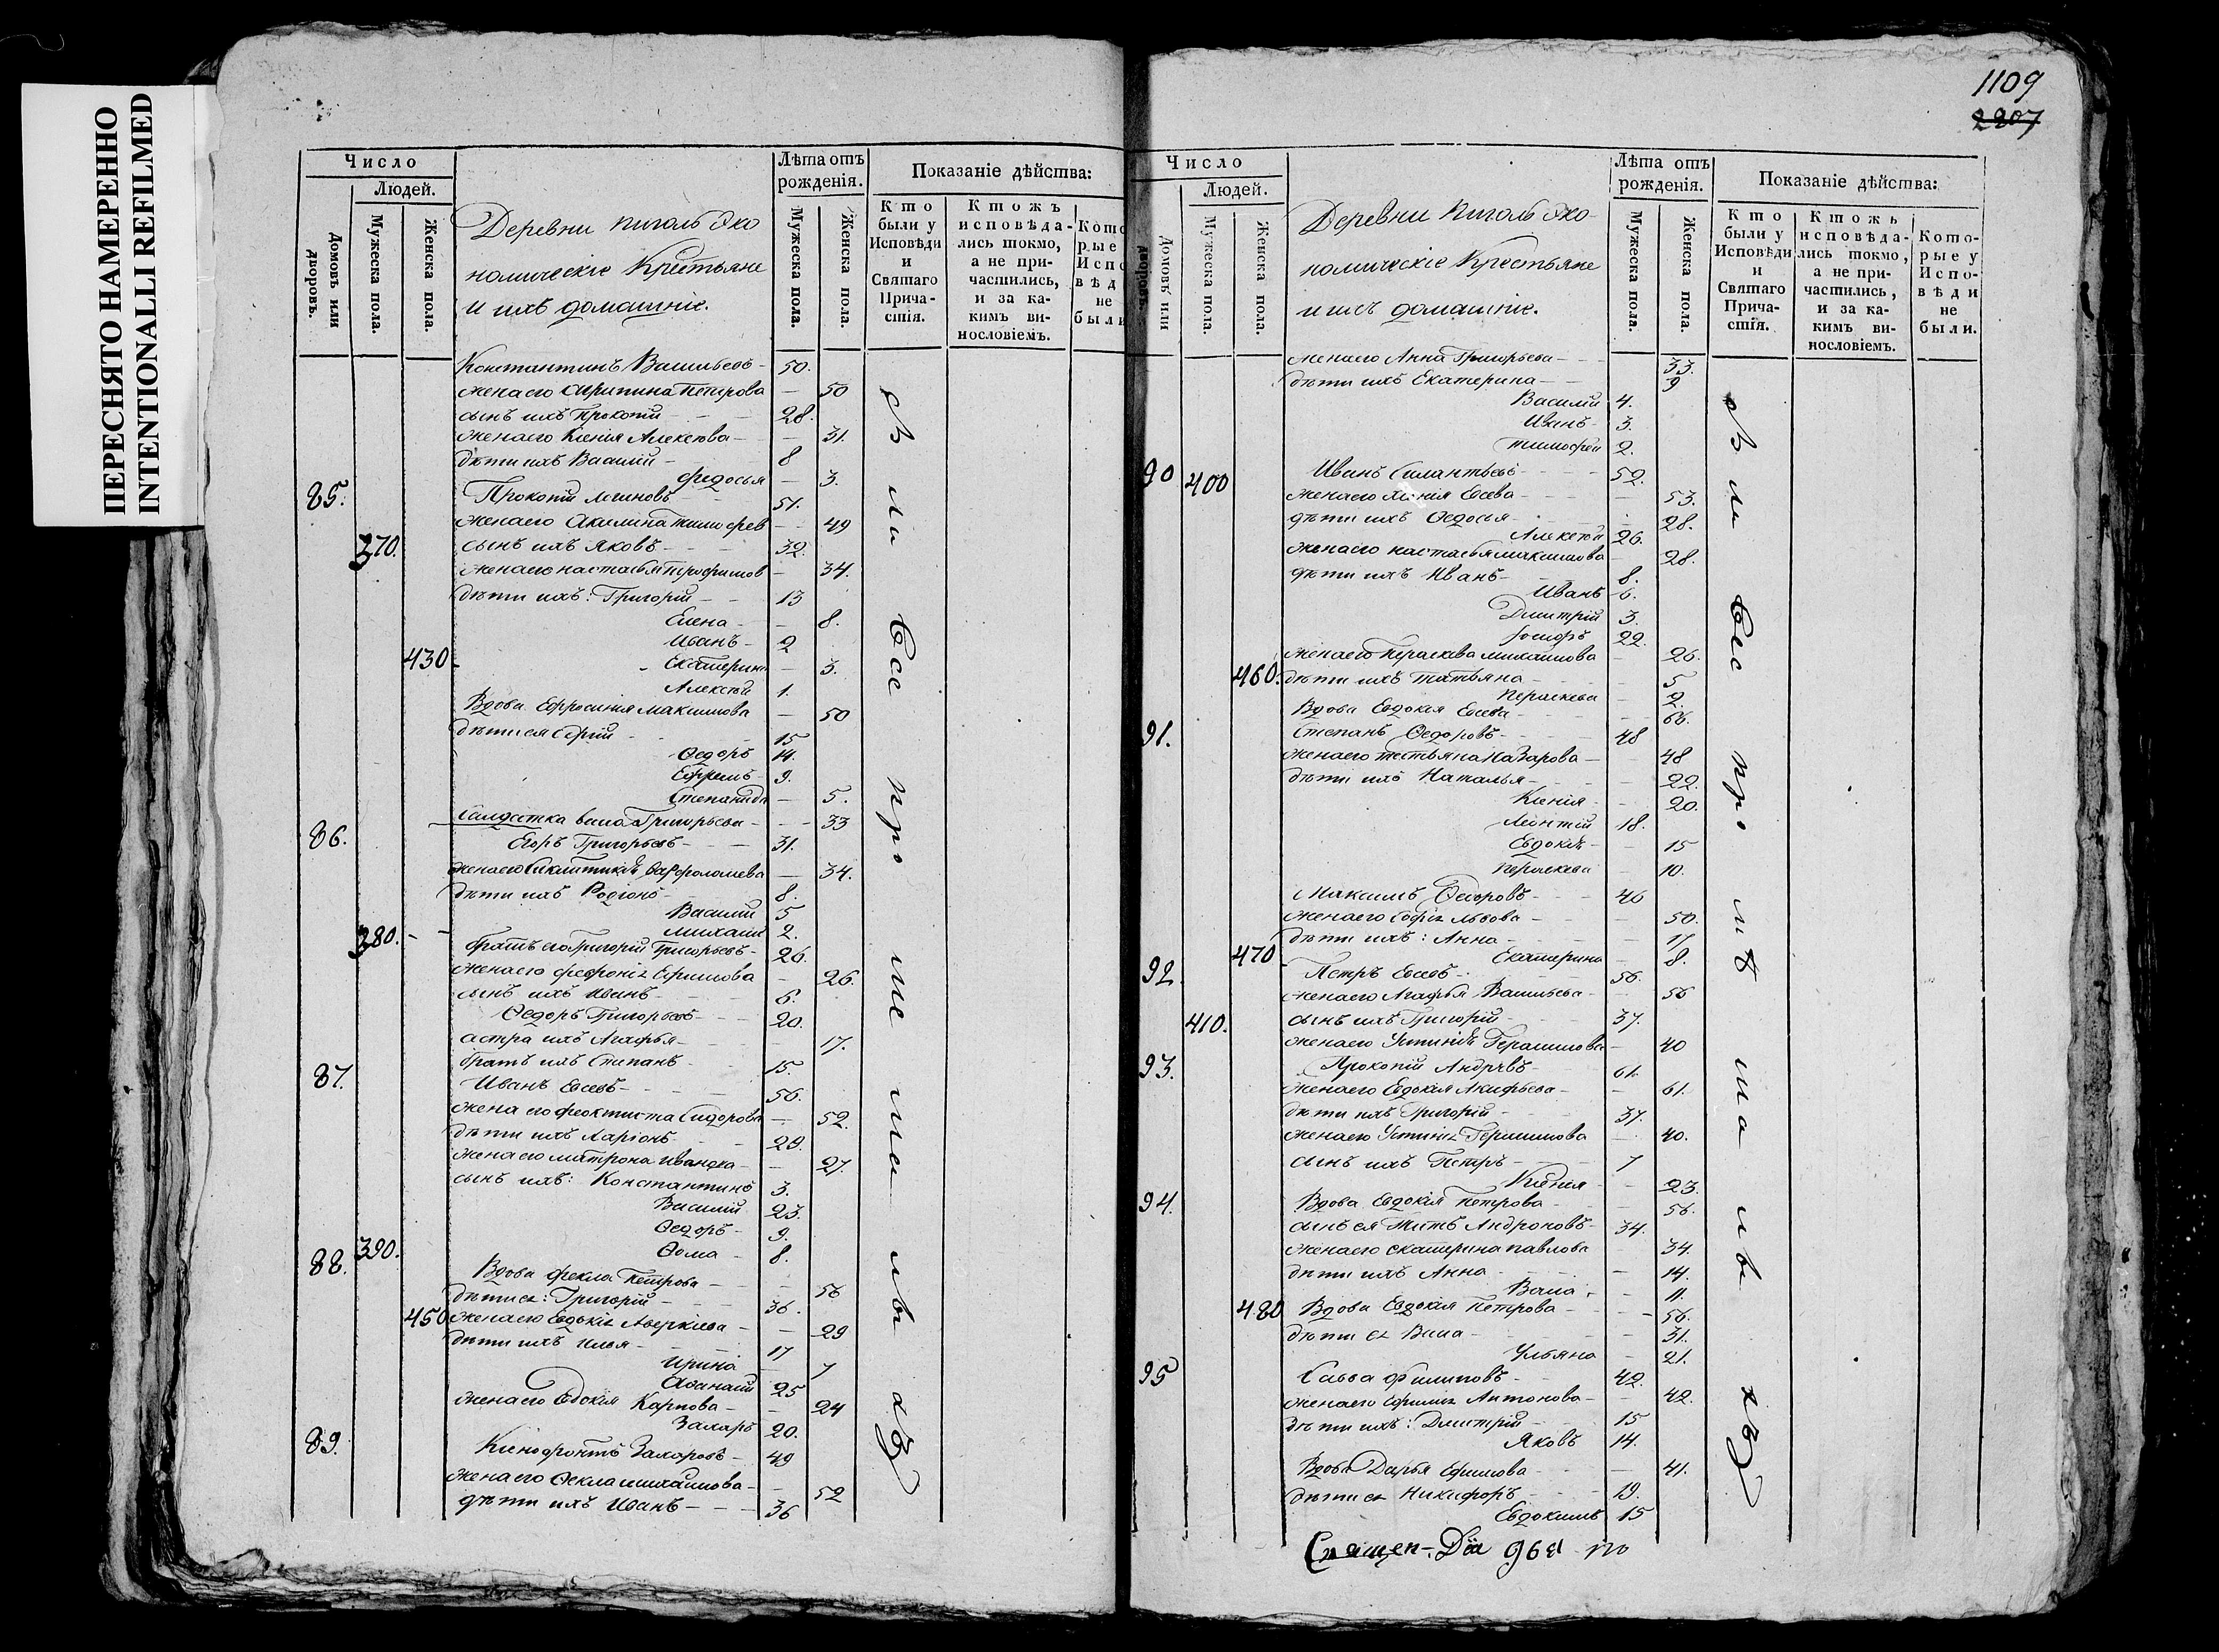 ПЕРЕСНЯТО НАМЕРЕННО
INTENTIONALLI REFILMED
Число
Людей.
Домовъ или дворовъ.
Мужеска пола.
Женска пола.
Деревни Пигаль Эко
номическіе Крестьяне
и ихъ домашніе.
Лѣта отъ рожденія.
Мужеска пола.
Женска пола.
Показаніе дѣйства:
Кто были у Исповѣди и Святаго Причастія.
Ктожъ исповѣдались токмо, а не причастились, и за какимъ винословіемъ.
Константинъ Васильевъ - 50.
жена его Агрипина Петрова - 50
сынъ ихъ Прокопій - 28.
жена его Ксенія Алексѣева - 31.
дѣти ихъ Василій - 8
Федосья - 3.
85. Прокопій Логиновъ 51.
жена его Акилина Тимофев - 49
370. сынъ ихъ Яковъ - 32.
жена его Настасья Трофимов - 34.
дѣти ихъ: Григорій - 13
Елена - 8.
Иванъ - 2
430 Екатерина - 3.
Алексѣй 1.
Вдова Ефросинія Максимова - 50
дѣти ея Сергій - 15
Ѳедоръ 14.
Ефремъ - 9.
Степанида - 5.
Салдатка Григорьева - 33
86. Егоръ Григорьевъ - 31.
жена его Варфоломева - 34.
дѣти ихъ Родіонъ - 8.
Василій 5
380. - Михаилъ 2.
братъ его Григорій Григорьевъ - 26.
жена его Феѳронія Ефимова - 26.
сынъ ихъ Иванъ - 6.
Ѳедоръ Григорьевъ - 20.
сестра ихъ Агафья - 17.
братъ ихъ Степанъ - 15.
87. Иванъ Евсевъ - 56.
жена его Феоктиста Сидорова - 52.
дѣти ихъ Ларіонъ - 29.
жена его Матрона Иванова - 27.
сынъ ихъ: Константинъ 3.
Василій 23.
Ѳедоръ - 9.
390. Ѳома - 8.
88. Вдова Фекла Петрова - 56
дѣти ея: Григорій - 36.
450 жена его Евдокія Аверкіева - 29
дѣти ихъ Илья - 17
Ирина 7
Аѳанасій 25
жена его Евдокія Карпова - 24
Захаръ 20.
89. Ксенофонтъ Захаровъ - 49
жена его Ѳекла Михайлова - 52
дѣти ихъ Иванъ - 36
1109
2207
Число
Людей.
Домовъ или дворовъ.
Мужеска пола.
Женска пола.
Деревни Пигаль Эко-
номическіе Крестьяне
и ихъ домашніе.
Лѣта отъ рожденія.
Мужеска пола.
Женска пола.
Показаніе дѣйства:
Кто были у Исповѣди и Святаго Причастія.
Ктожъ исповѣдались токмо, а не причастились, и за какимъ винословіемъ.
Которые у Исповѣди не были.
жена его Анна Григорьева - 33.
дѣти ихъ Екатерина - 9
Василій 4.
Иванъ - 3.
Тимофей 2.
90 400 Иванъ Силантьевъ - 52.
жена его Ксенія Евсева - 53.
дѣти ихъ Ѳедосья - 28.
Алексѣй 26.
жена его Настасья Максимова - 28.
дѣти ихъ Иванъ - 8.
Иванъ 6.
Дмитрій 3.
Іосифъ 22.
жена его Параскева Михайлова - 26.
460. дѣти ихъ Татьяна - 5
Параскева - 2.
Вдова Евдокія Евсева -
91. Степанъ Ѳедоровъ - 48
жена его Татьяна Назарова - 48
дѣти ихъ Наталья - 22.
Ксенія - 20.
Леонтій 18.
Евдокія - 15
Параскева - 10.
Максимъ Ѳедоровъ - 46
жена его Софія Львова - 50.
дѣти ихъ: Анна - 17
470 Екатерина - 8.
92. Петръ Евсевъ - 56.
жена его Агафья Васильева - 56
410. сынъ ихъ Григорій - 37.
жена его Устинія Герасимова - 40
93. Прокопій Андревъ - 61.
жена его Евдокія Акифьева - 61.
дѣти ихъ Григорій - 37.
жена его Устинія Герасимова - 40.
сынъ ихъ Петръ - 7
Ксенія - 23.
94. Вдова Евдокія Петрова - 56.
сынъ ея Титъ Андроновъ - 34.
жена его Екатерина Павлова - 34.
дѣти ихъ Анна - 14.
Васса - 11.
480 Вдова Евдокія Петрова - 56.
дѣти ея Васса - 31.
Ульяна - 21.
95 Савва Филиповъ - 42.
жена его Ефимія Антонова - 42.
дѣти ихъ: Дмитрій - 15
Яковъ 14.
Вдова Дарья Ефимова - 41.
дѣти ея Никифоръ - 19.
Евдокимъ 15